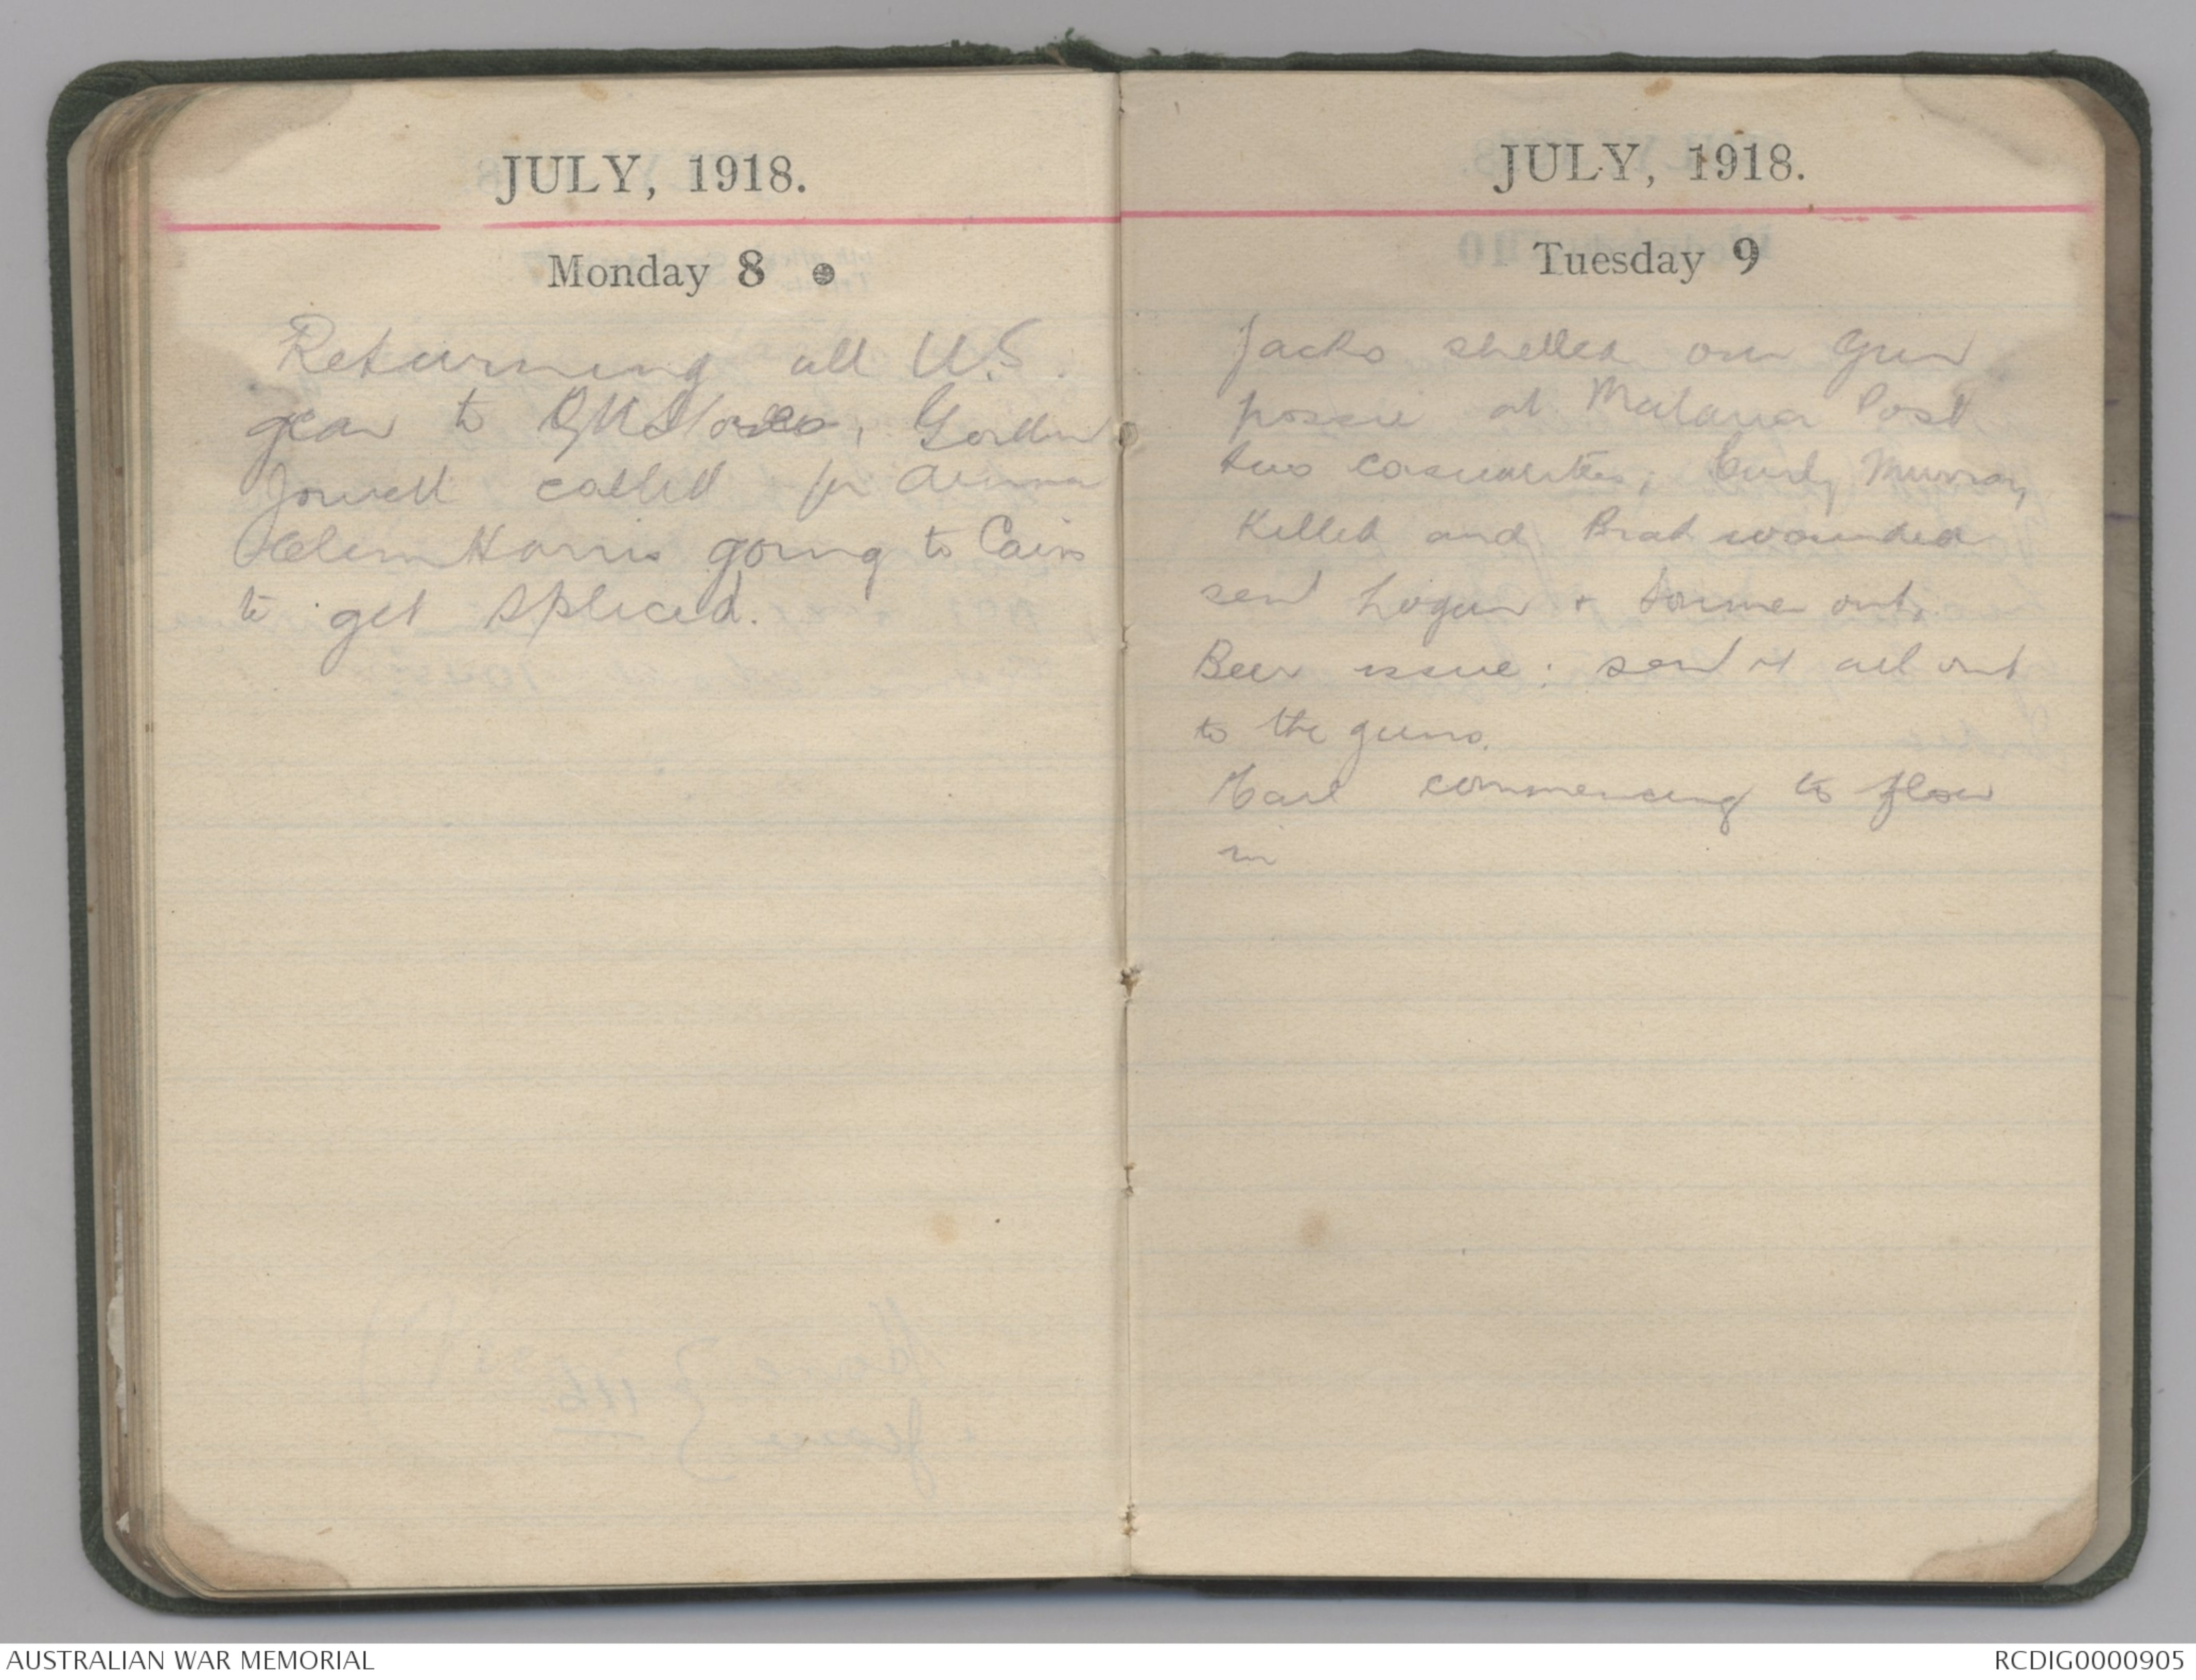 JULY, 1918.
Monday 8
Returning all U.S.
gear to QM Stores, Gordon
Jowett called for
Clem Harris going to Cairo
to get spliced.
JULY, 1918.
Tuesday 9
Jacko shelled our Gun
possie at Malaria Post
two casualties; Curly Murray
Killed and Brad wounded
send Logan & out.
Beer issue: send it all out
to the guns.
commencing to flow
in
AUSTRALIAN WAR MEMORIAL
RCDIG0000905